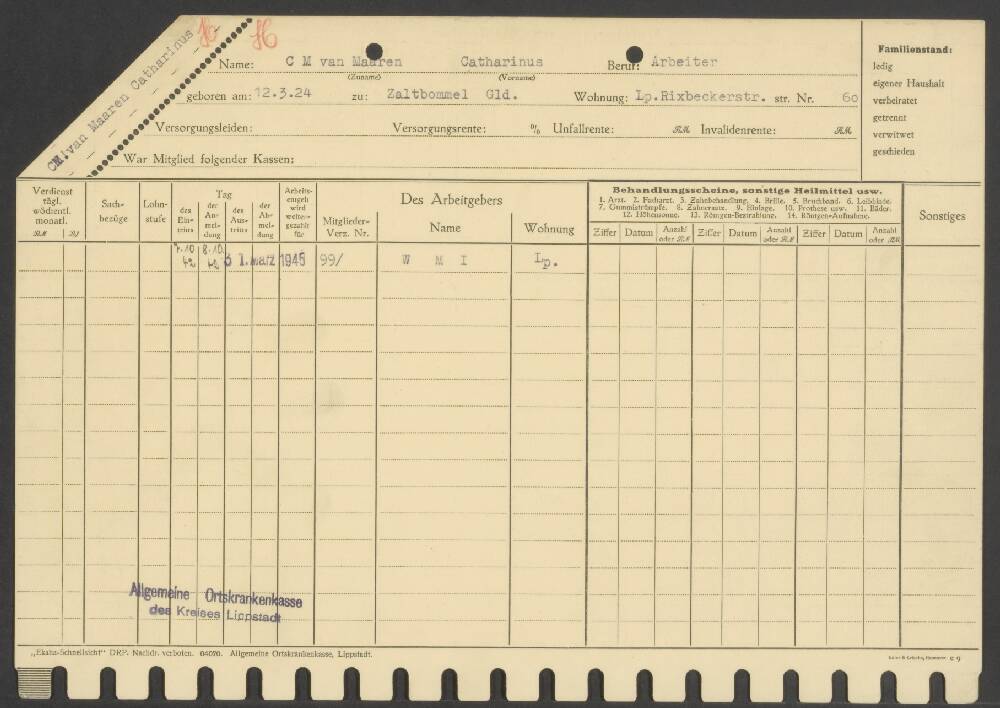 CM.van Maaren Catharinus
Name: C M van Maaren Catharinus Beruf: Arbeiter
(Zuname) (Vorname)
geboren am: 12.3.24 zu: Zaltbommel Gld. Wohnung: Lp.Rixbeckerstr. str. Nr. 60
Versorgungsleiden: Versorgungsrente: % Unfallrente: RM. Invalidenrente: RM.
War Mitglied folgender Kassen:
Familienstand:
ledig
eigener Haushalt
verheiratet
getrennt
verwitwet
geschieden
Verdienst tägl. wöchentl. monatl. RM Rpf
Sach-bezüge
Lohn-stufe
Tag
des Ein-tritts
der An-mel-dung
des Aus-tritts
der Ab-mel-dung
Arbeits-entgelt wird weiter-gezahlt für
Mitglieder-Verz. Nr.
Des Arbeitgebers
Name Wohnung
Behandlungsscheine, sonstige Heilmittel usw.
1. Arzt. 2. Facharzt. 3. Zahnbehandlung. 4. Brille. 5. Bruchband. 6. Leibbinde.
7. Gummistrümpfe. 8. Zahnersatz. 9. Einlage. 10. Prothese usw. 11. Bäder.
12. Höhensonne. 13. Röntgen-Bestrahlung. 14. Röntgen-Aufnahme.
Ziffer Datum Anzahl oder RM Ziffer Datum Anzahl oder RM Ziffer Datum Anzahl oder RM
Sonstiges
7.10 8.10.
42 42 31. März 1945 99/ W M I Lp.
Allgemeine Ortskrankenkasse
des Kreises Lippstadt
„Ekaha-Schnellsicht“ DRP. Nachdr. verboten. 04070. Allgemeine Ortskrankenkasse, Lippstadt.